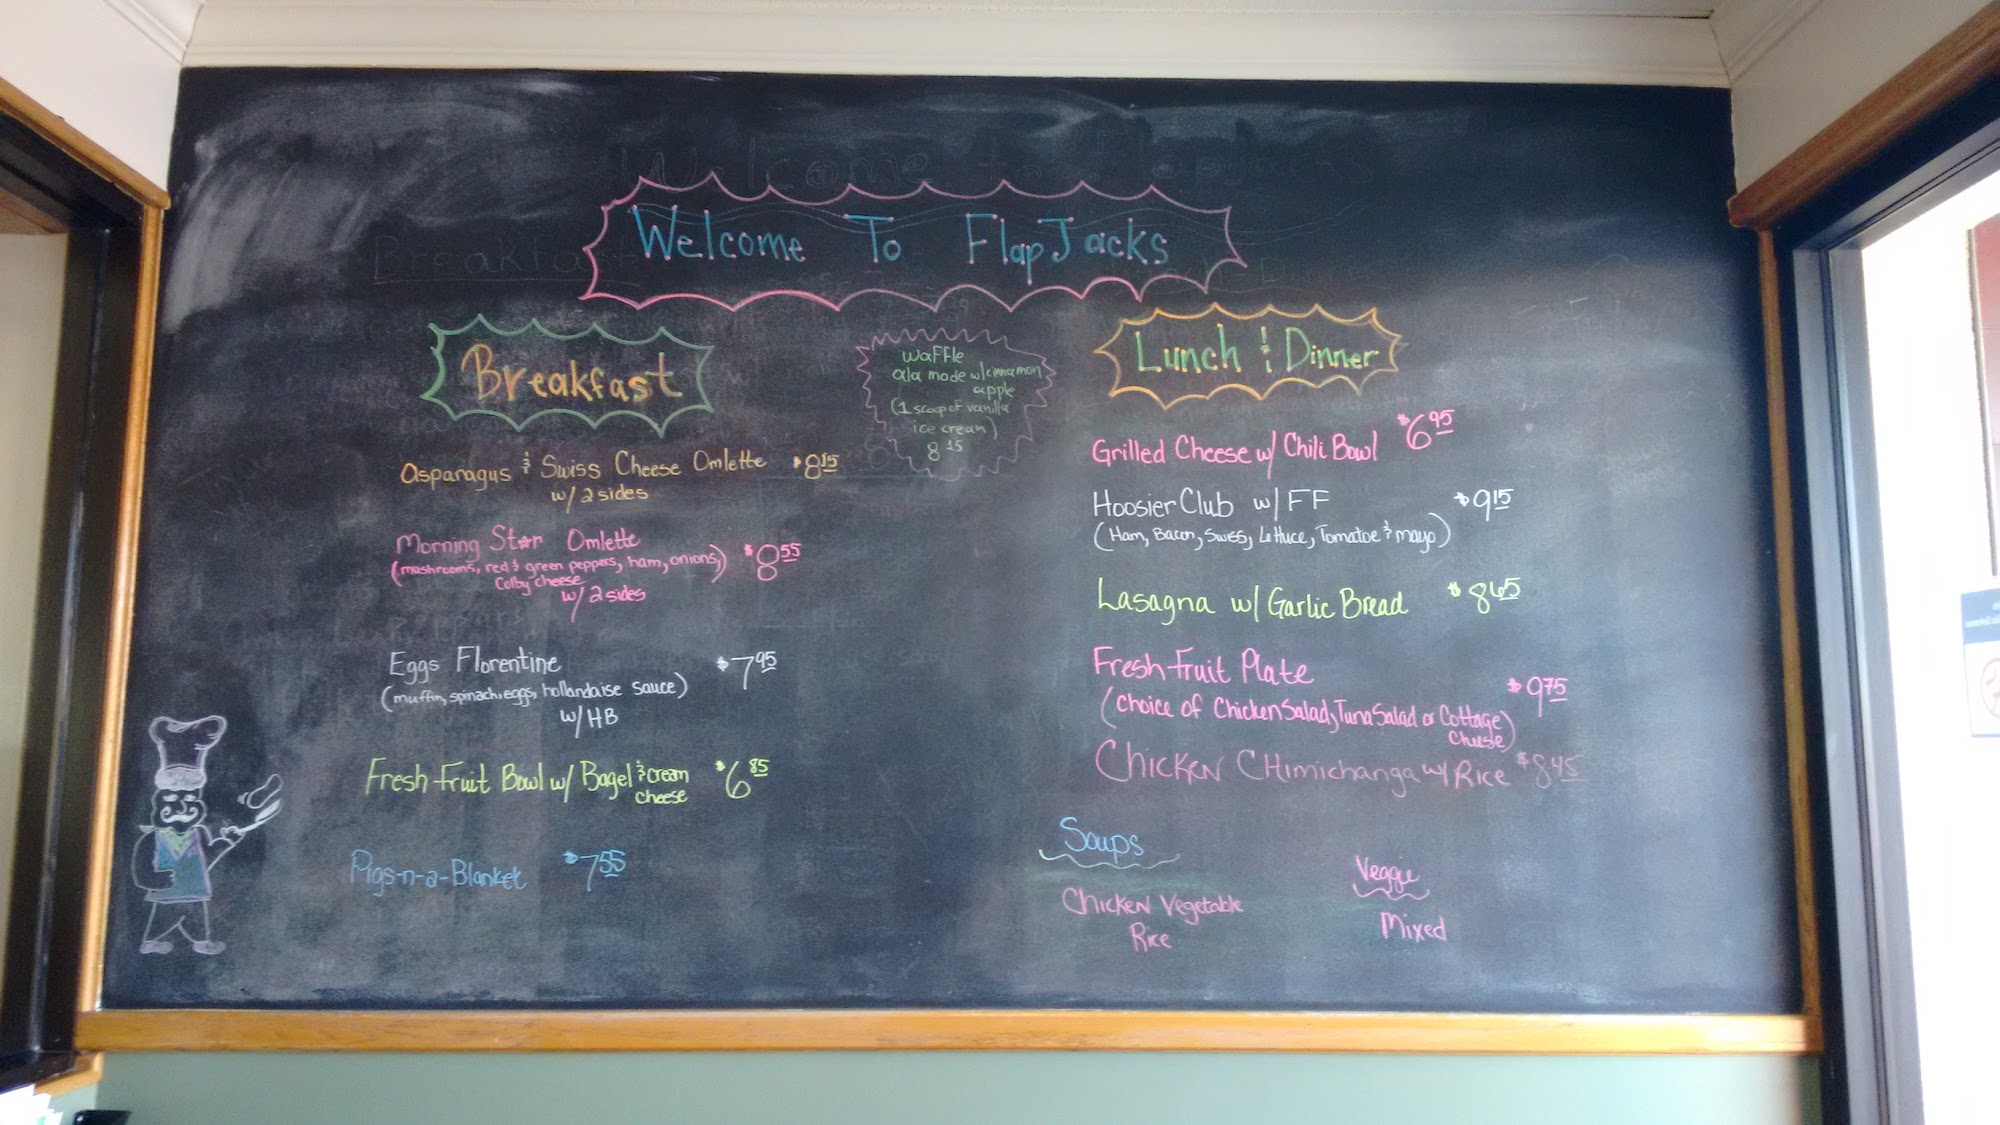 Welcome To FlapJacks
Breakfast
Asparagus & Swiss Cheese Omlette $8.15
w/ 2 sides
Morning Star Omlette
(mushrooms, red & green peppers, ham, onions,) $8.55
Colby cheese
w/ 2 sides
Eggs Florentine $7.95
(muffin, spinach, eggs, hollandaise sauce)
w/ HB
Fresh Fruit Bowl w/ Bagel & cream $6.85
cheese
Pigs-n-a-Blanket $7.55
Waffle
ala mode w/ cinnamon
apple
(1 scoop of vanilla
ice cream)
8.15
Lunch & Dinner
Grilled Cheese w/ Chili Bowl $6.95
Hoosier Club w/ FF $9.15
(Ham, Bacon, Swiss, Lettuce, Tomatoe & mayo)
Lasagna w/ Garlic Bread $8.65
Fresh Fruit Plate
(choice of Chicken Salad, Tuna Salad or Cottage $9.75
Cheese)
Chicken Chimichanga w/ Rice $8.45
Soups
Chicken Vegetable
Rice
Veggie
Mixed